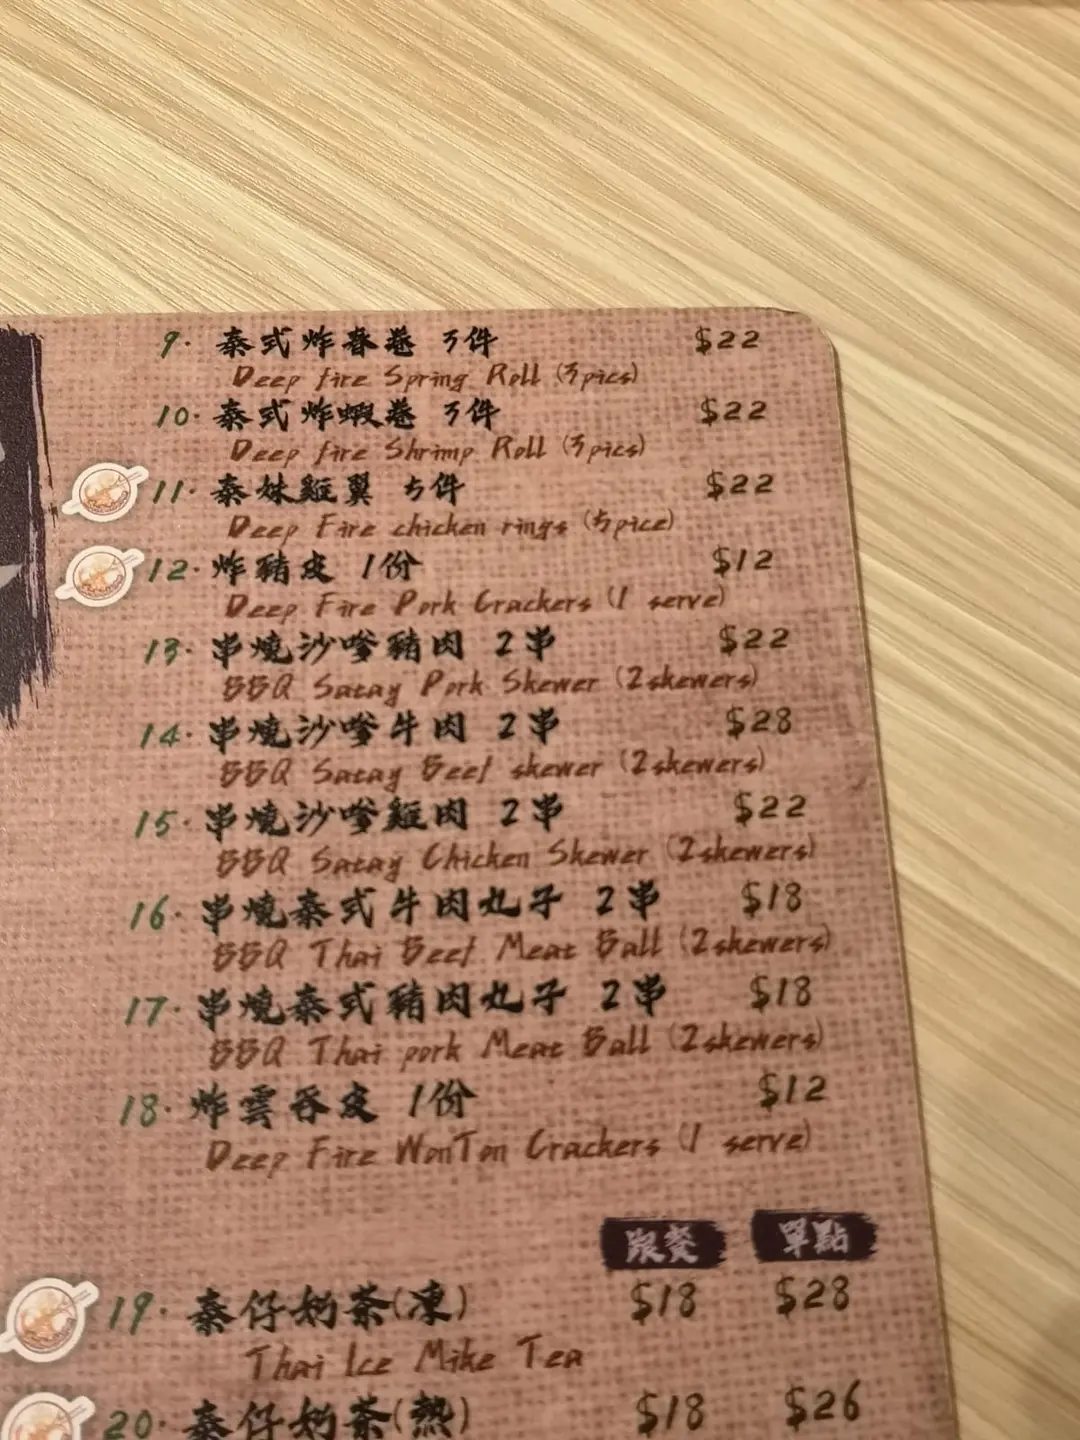 9. 泰式炸春卷 3件 $22
Deep fire Spring Roll (3pics)
10. 泰式炸蝦卷 3件 $22
Deep fire Shrimp Roll (3pics)
11. 泰妹雞翼 5件 $22
Deep Fire chicken rings (5pice)
12. 炸豬皮 1份 $12
Deep Fire Pork Crackers (1 serve)
13. 串燒沙嗲豬肉 2串 $22
BBQ Satay Pork Skewer (2skewers)
14. 串燒沙嗲牛肉 2串 $28
BBQ Satay Beef skewer (2skewers)
15. 串燒沙嗲雞肉 2串 $22
BBQ Satay Chicken Skewer (2skewers)
16. 串燒泰式牛肉丸子 2串 $18
BBQ Thai Beef Meat Ball (2skewers)
17. 串燒泰式豬肉丸子 2串 $18
BBQ Thai pork Meat Ball (2skewers)
18. 炸雲吞皮 1份 $12
Deep Fire WonTon Crackers (1 serve)
跟餐 單點
19. 泰仔奶茶(凍) $18 $28
Thai Ice Mike Tea
20. 泰仔奶茶(熱) $18 $26